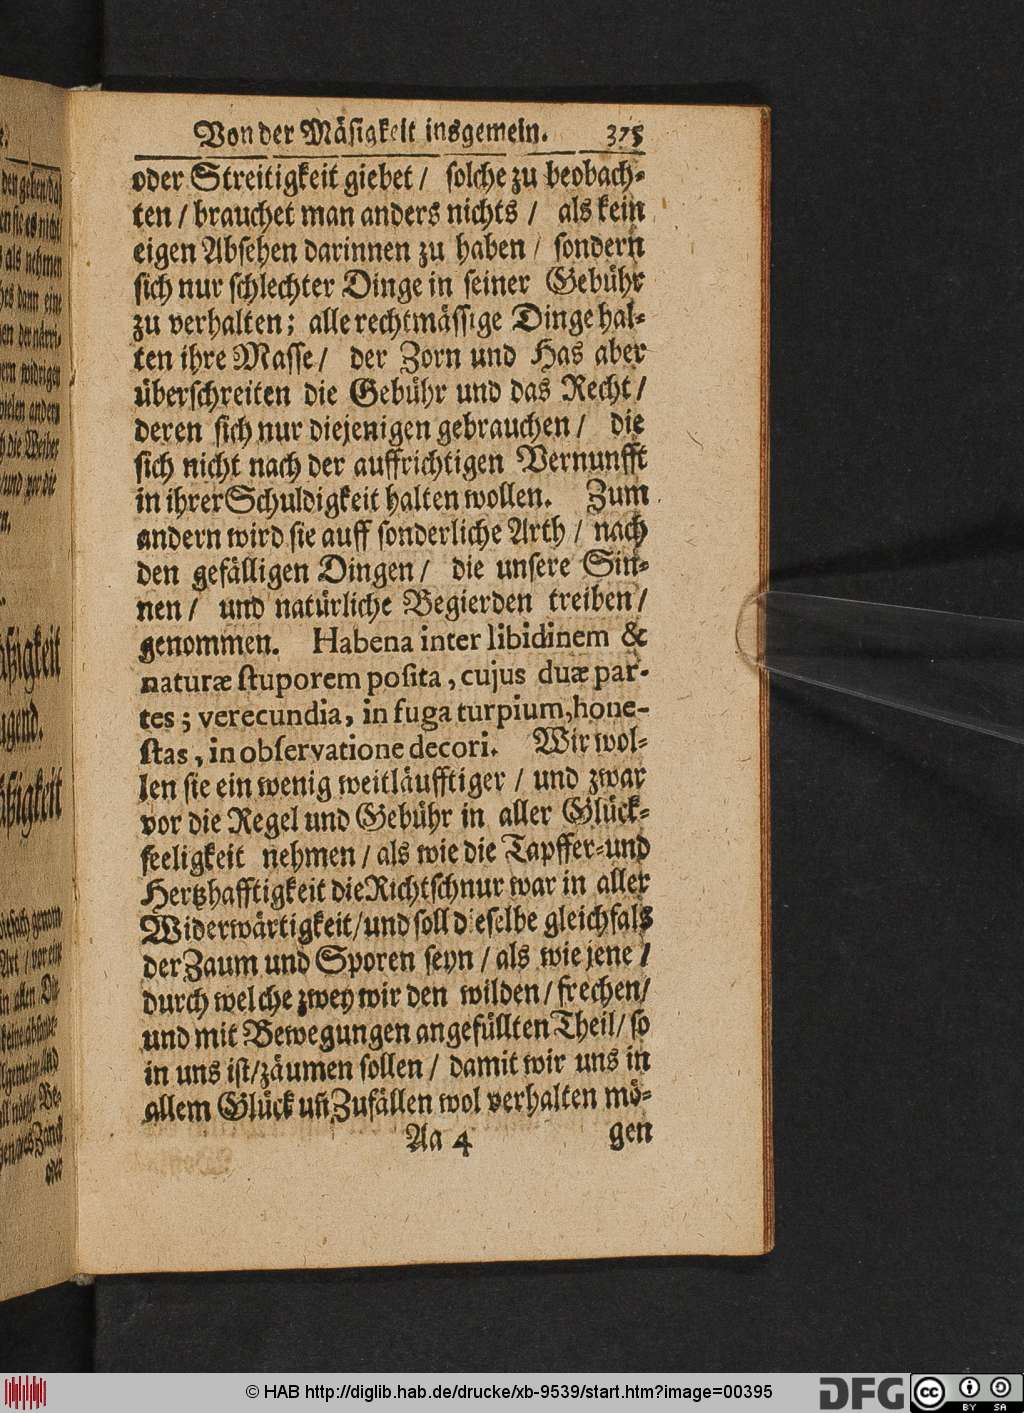 Von der Mäsigkeit insgemein. 375
oder Streitigkeit giebet / solche zu beobach-
ten / brauchet man anders nichts / als kein
eigen Absehen darinnen zu haben / sondern
sich nur schlechter Dinge in seiner Gebühr
zu verhalten; alle rechtmässige Dinge hal-
ten ihre Masse / der Zorn und Has aber
überschreiten die Gebühr und das Recht /
deren sich nur diejenigen gebrauchen / die
sich nicht nach der auffrichtigen Vernunfft
in ihrer Schuldigkeit halten wollen. Zum
andern wird sie auff sonderliche Arth / nach
den gefälligen Dingen / die unsere Sin-
nen / und natürliche Begierden treiben /
genommen. Habena inter libidinem &
naturæ stuporem posita, cujus duæ par-
tes; verecundia, in fuga turpium, hone-
stas, in observatione decori. Wir wol-
len sie ein wenig weitläufftiger / und zwar
vor die Regel und Gebühr in aller Glück-
seeligkeit nehmen / als wie die Tapffer-und
Hertzhafftigkeit die Richtschnur war in aller
Widerwärtigkeit / und soll dieselbe gleichfals
der Zaum und Sporen seyn / als wie jene /
durch welche zwey wir den wilden / frechen /
und mit Bewegungen angefüllten Theil / so
in uns ist / zäumen sollen / damit wir uns in
allem Glück uñ Zufällen wol verhalten mö-
Aa 4 gen
© HAB http://diglib.hab.de/drucke/xb-9539/start.htm?image=00395
DFG CC BY SA